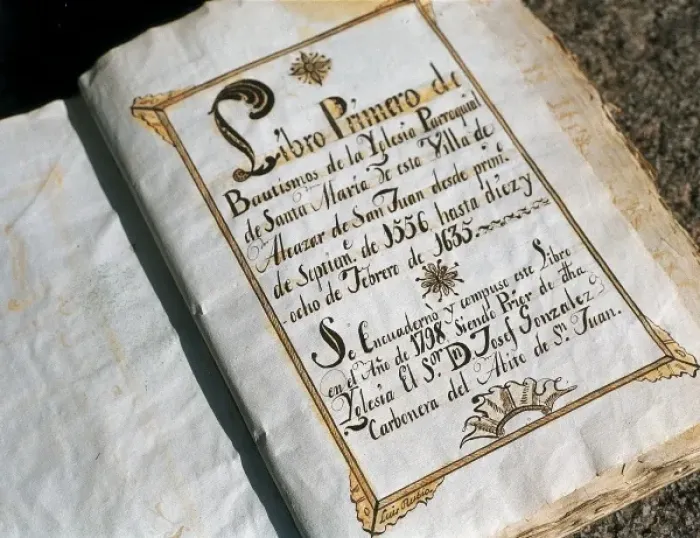 Libro Primero de
Bautismos de la Yglesia Parroquial
de Santa María de esta Villa de
Alcazar de San Juan desde prim.º
de Septiem.e de 1556, hasta diez y
ocho de Febrero de 1635.
Se Encuaderno y compuso este Libro
en el Año de 1798. Siendo Prior de dha
Yglesia El S.or D.n Josef Gonzalez
Carbonera del Abito de S.n Juan.
Luis Rubio